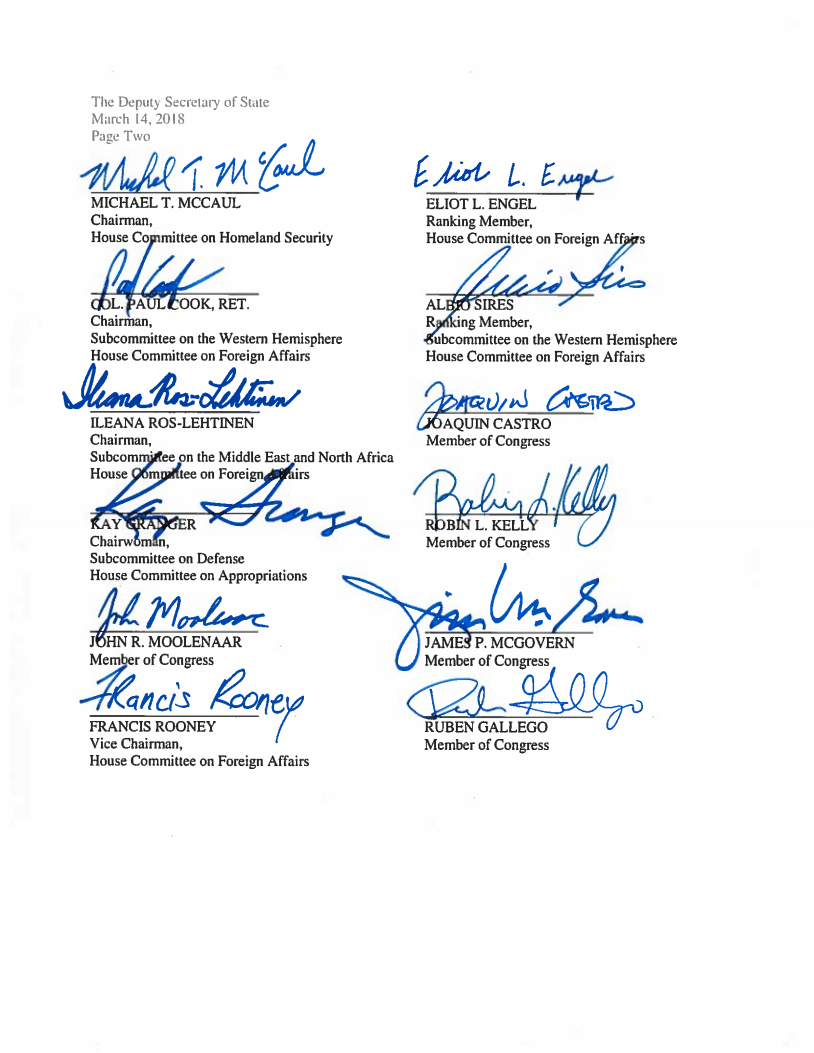 The Deputy Secretary of State
March 14, 2018
Page Two
Michael T. McCaul
MICHAEL T. MCCAUL
Chairman,
House Committee on Homeland Security
Eliot L. Engel
ELIOT L. ENGEL
Ranking Member,
House Committee on Foreign Affairs
Paul Cook
COL. PAUL COOK, RET.
Chairman,
Subcommittee on the Western Hemisphere
House Committee on Foreign Affairs
Albio Sires
ALBIO SIRES
Ranking Member,
Subcommittee on the Western Hemisphere
House Committee on Foreign Affairs
Ileana Ros-Lehtinen
ILEANA ROS-LEHTINEN
Chairman,
Subcommittee on the Middle East and North Africa
House Committee on Foreign Affairs
JOAQUIN CASTRO
JOAQUIN CASTRO
Member of Congress
Kay Granger
KAY GRANGER
Chairwoman,
Subcommittee on Defense
House Committee on Appropriations
Robin L. Kelly
ROBIN L. KELLY
Member of Congress
John Moolenaar
JOHN R. MOOLENAAR
Member of Congress
Jim McGovern
JAMES P. MCGOVERN
Member of Congress
Francis Rooney
FRANCIS ROONEY
Vice Chairman,
House Committee on Foreign Affairs
Ruben Gallego
RUBEN GALLEGO
Member of Congress